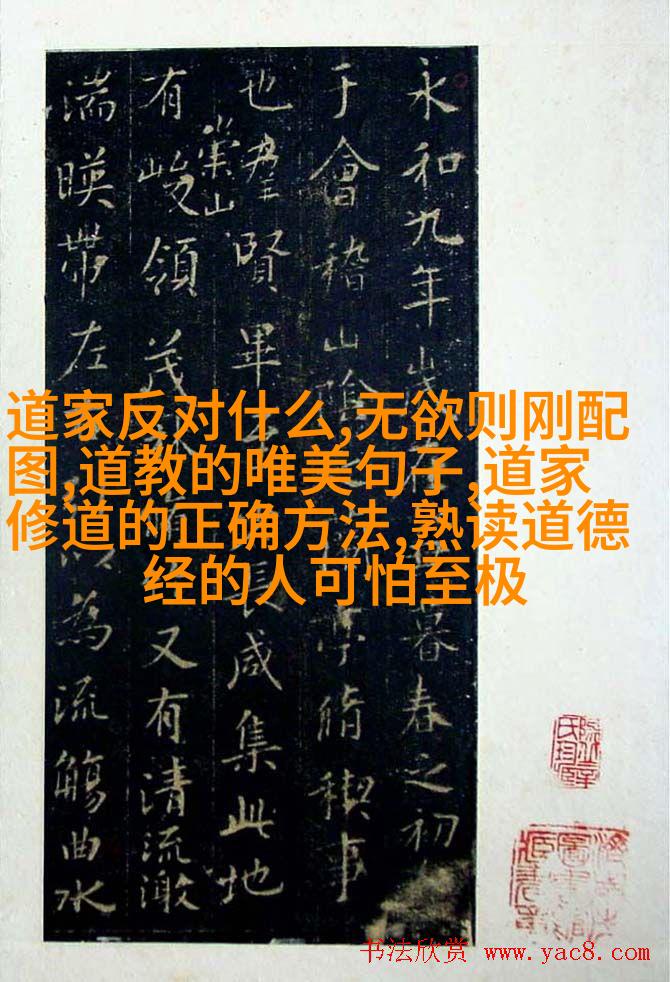 永和九年歲在暮春之初
于會稽山陰亭脩稧事
也羣賢畢長咸集此地
有崇山峻領茂又有清流激
湍暎帶左為流觴曲水
道家反对什么,无欲则刚配
图,道教的唯美句子,道家
修道的正确方法,熟读道德
经的人可怕至极
书法欣赏 www.yac8.com